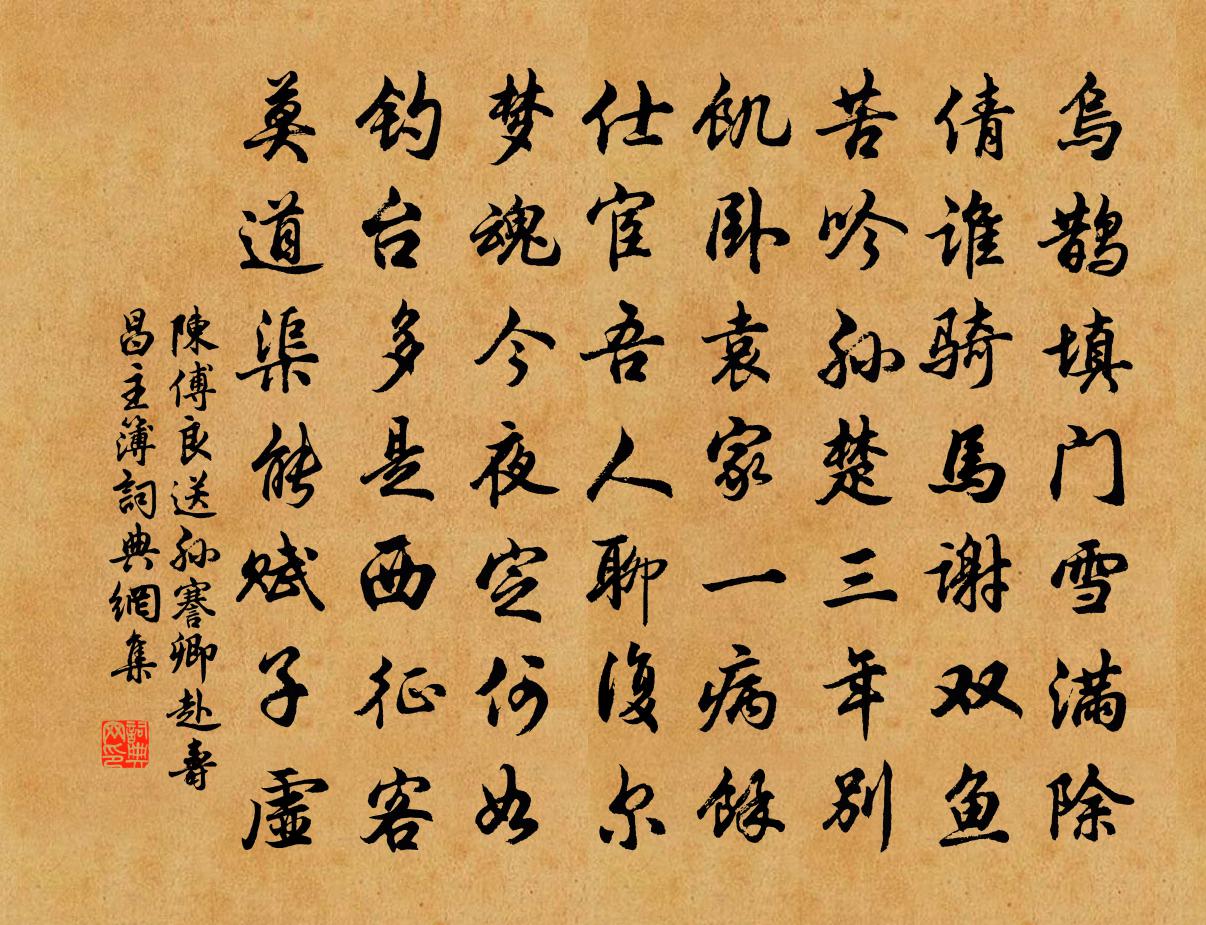 乌鹊填门雪满除
倩谁骑马谢双鱼
苦吟孙楚三年别
饥卧袁家一病馀
仕宦吾人聊复尔
梦魂今夜定何如
钓台多是西征客
莫道渠能赋子虚
陳傅良送孙謇卿赴壽
昌主簿詞典網集
詞典网印